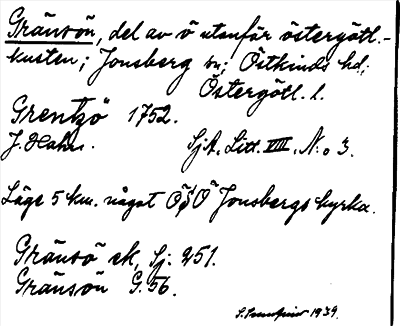 Gränsön, del av ö utanför östergötl.-
kusten; Jonsberg sn; Östkinds hd;
Östergötl. l.
Grentzö 1752.
J. Hahn. SjA, Litt. VIII, N:o 3.
Läge 5 km. något ÖSÖ Jonsbergs kyrka.
Gränsö ek, Sj: 251.
Gränsön G. 56.
1939.